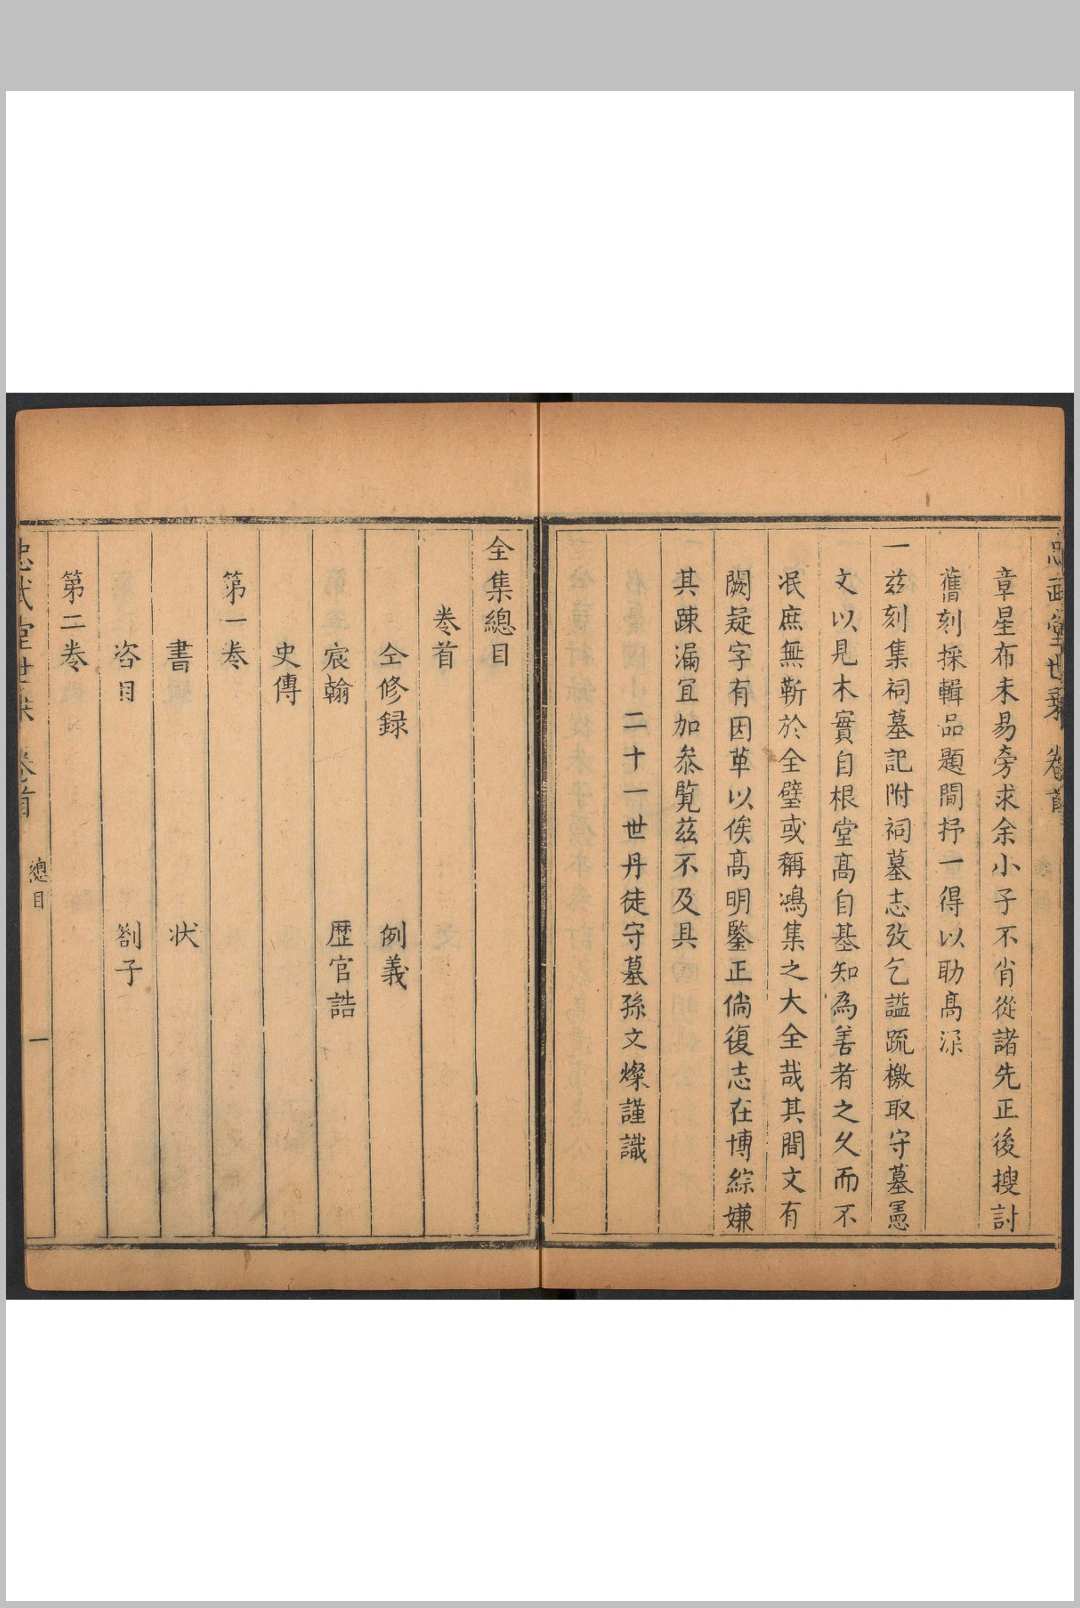 章星布未易旁求余小子不肖從諸先正後搜討
舊刻採輯品題間抒一得以助髙深
一茲刻集祠墓記附祠墓志攷乞謚疏檄取守墓憑
文以見木實自根堂髙自基知為善者之久而不
泯庶無靳於全璧或稱鴻集之大全哉其間文有
闕疑字有因革以俟髙明鑒正倘復志在博綜嫌
其踈漏冝加叅覽茲不及具
二十一世丹徒守墓孫文燦謹識
全集總目
卷首
仝修録 例義
宸翰 歴官誥
史傳
第一卷
書 状
咨目 劄子
第二卷
忠武堂世 卷首 總目 一